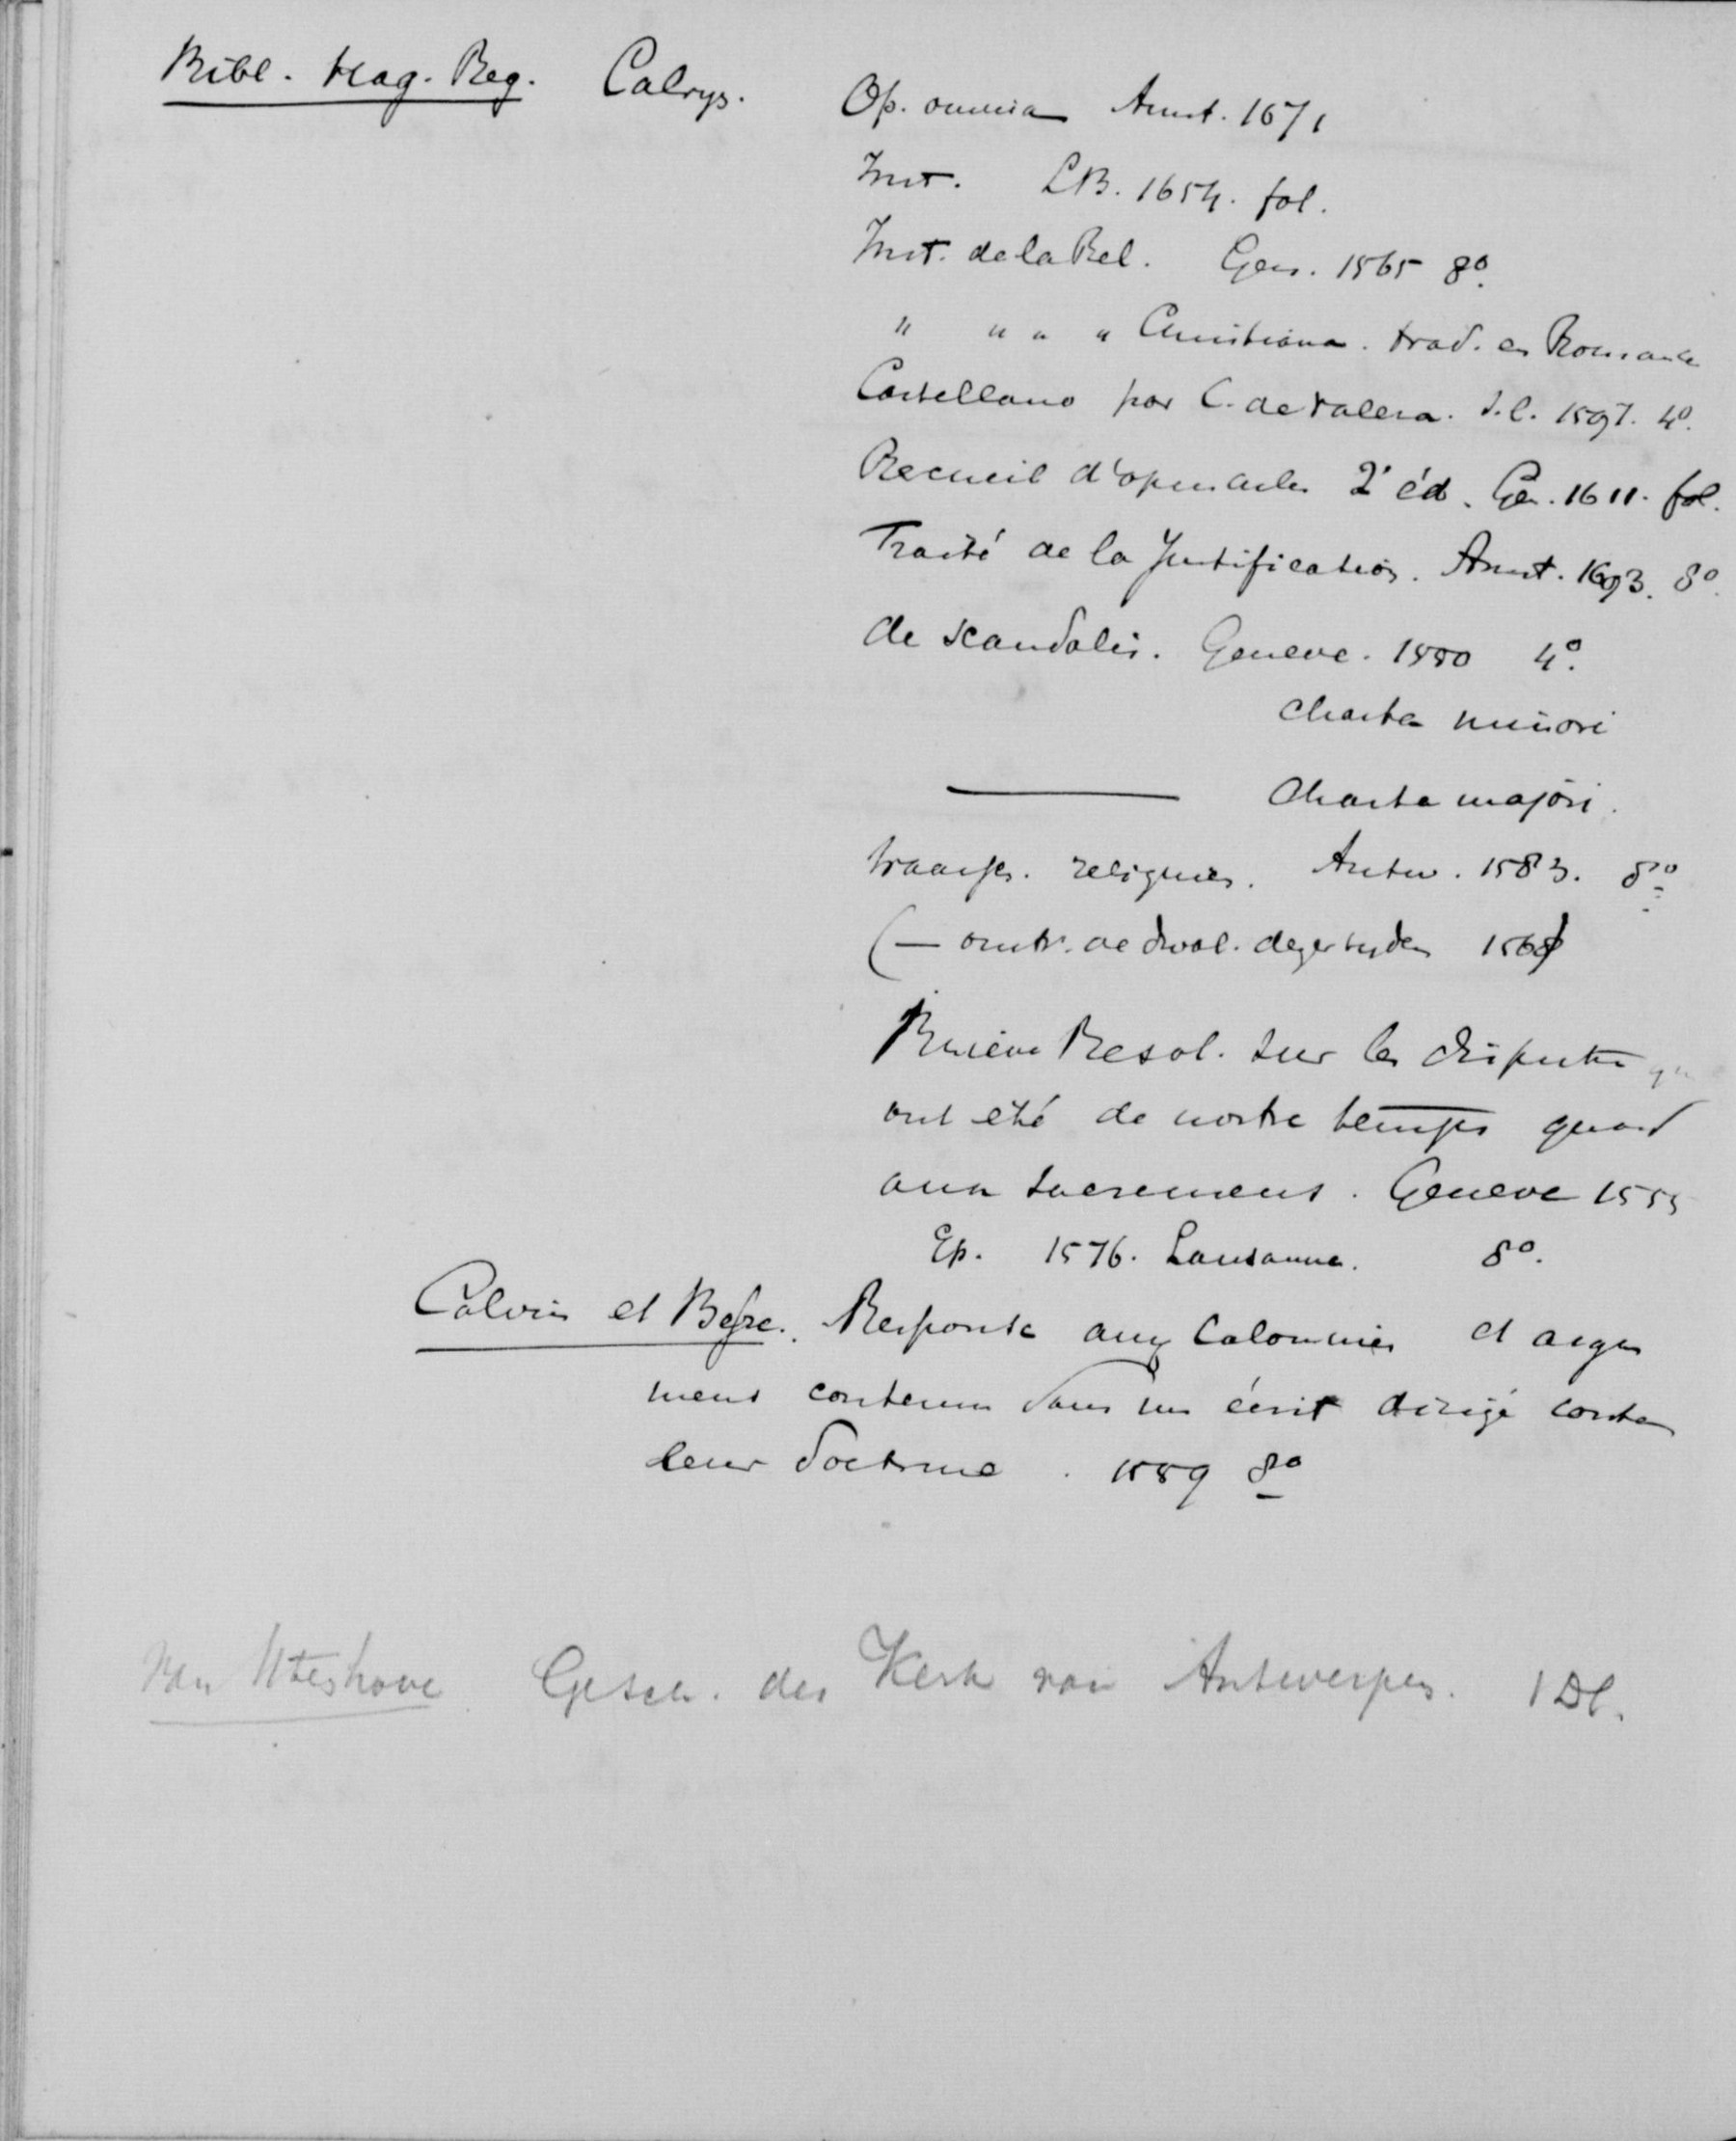 Bibl. Hag. Reg. Calvijn. Op. omnia Amst. 1671
Inst. LB. 1654. fol.
Inst. de la Rel. Gen. 1565 8º.
" " " " Christiana. trad. en Romance
Castellano por C. de Valera. s.l. 1597. 4º.
Recueil d'opuscules 2e éd. Gen. 1611. fol.
Traité de la Justification. Amst. 1693. 8º.
de scandalis. Geneve. 1550 4º.
charta minori
——— charta majori.
traictés. reliques. Antw. 1583. 8º
(— omtr. de dwal. dezer tijden
Brieve Resol. sur les disputes qui
ont été de nostre temps quand
aux sacremens. Geneve 1555
Ep. 1576. Lausanne. 8º.
Calvin et Beze. Response aux calomnies et argu
mens contenus dans un écrit dirigé contre
leur doctrine. 1559 8º
Van Uteshove Gesch. der Kerk van Antwerpen. 1 Dl.